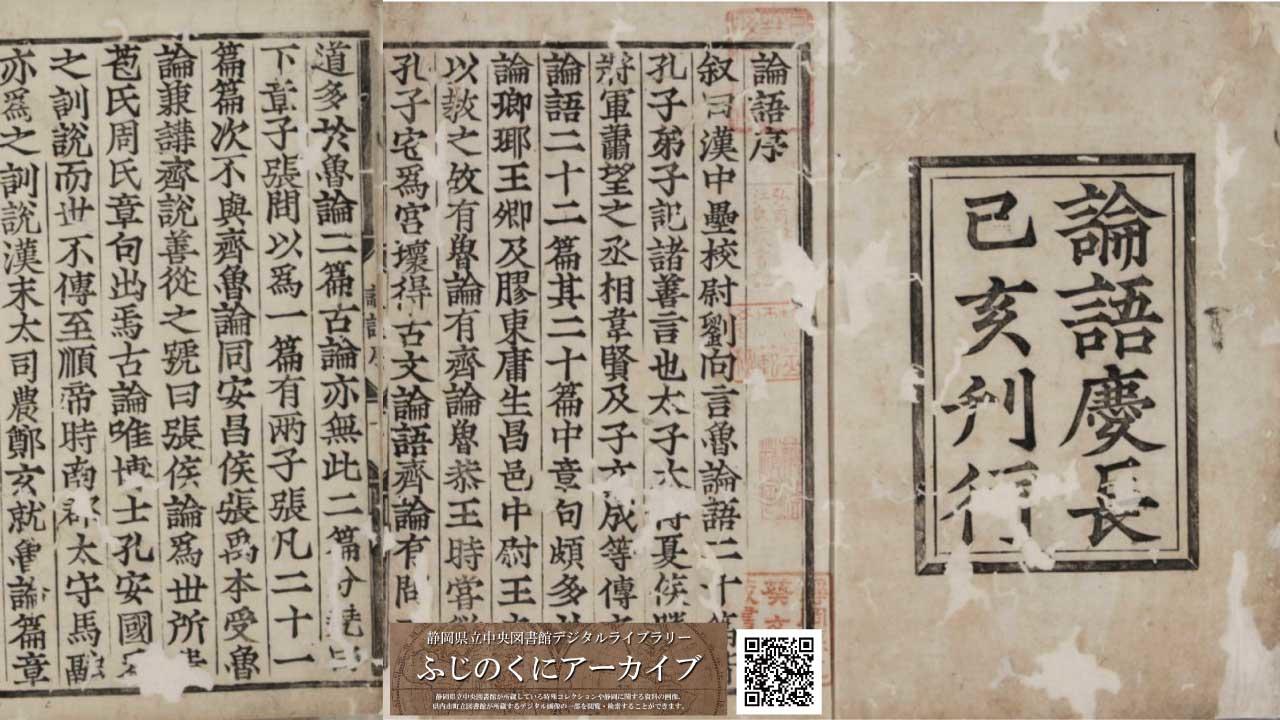 論語慶長
己亥刋行
論語序
叙曰漢中壘校尉劉向言魯論語二十篇
孔子弟子記諸善言也太子太傅夏侯勝
將軍蕭望之丞相韋賢及子玄成等傳
論語二十二篇其二十篇中章句頗多
論瑯琊王卿及膠東庸生昌邑中尉王
以敎之故有魯論有齊論魯恭王時嘗
孔子宅爲宮壞得古文論語齊論有問
道多於魯論二篇古論亦無此二篇分堯曰
下章子張問以爲一篇有兩子張凡二十一
篇篇次不與齊魯論同安昌侯張禹本受魯
論兼講齊說善從之號曰張侯論爲世所
苞氏周氏章句出焉古論唯博士孔安國
之訓說而世不傳至順帝時南郡太守馬融
亦爲之訓說漢末太司農鄭玄就魯論篇章
静岡県立中央図書館デジタルライブラリー
ふじのくにアーカイブ
静岡県立中央図書館が所蔵している特殊コレクションや静岡に関する資料の画像、
県内市町立図書館が所蔵するデジタル画像の一部を閲覧・検索することができます。